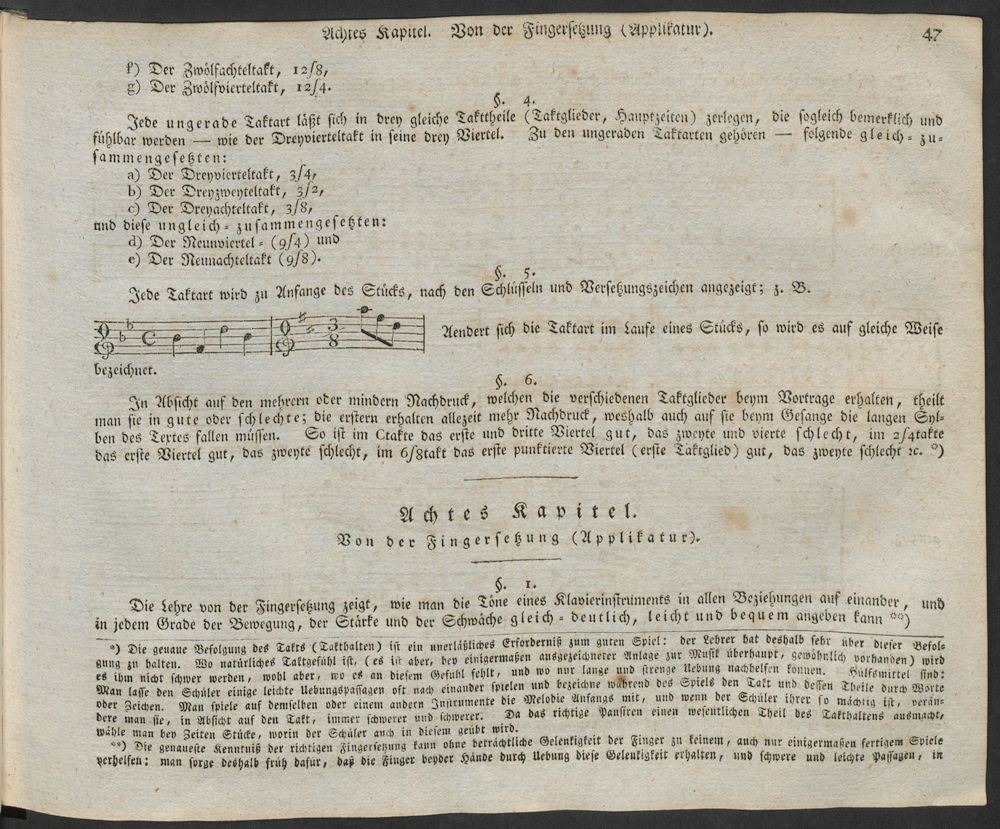 Achtes Kapitel. Von der Fingersetzung (Applikatur). 47
f) Der Zwölfachteltakt, 12/8,
g) Der Zwölfvierteltakt, 12/4.
§. 4.
Jede ungerade Taktart läßt sich in drey gleiche Takttheile (Taktglieder, Hauptzeiten) zerlegen, die sogleich bemerklich und
fühlbar werden — wie der Dreyvierteltakt in seine drey Viertel. Zu den ungeraden Taktarten gehören — folgende gleich-zu-
sammengesetzten:
a) Der Dreyvierteltakt, 3/4,
b) Der Dreyzweyteltakt, 3/2,
c) Der Dreyachteltakt, 3/8,
und diese ungleich-zusammengesetzten:
d) Der Neunviertel- (9/4) und
e) Der Neunachteltakt (9/8).
§. 5.
Jede Taktart wird zu Anfange des Stücks, nach den Schlüsseln und Versetzungszeichen angezeigt; z. B.
C 3/8 Aendert sich die Taktart im Laufe eines Stücks, so wird es auf gleiche Weise
bezeichnet.
§. 6.
In Absicht auf den mehrern oder mindern Nachdruck, welchen die verschiedenen Taktglieder beym Vortrage erhalten, theilt
man sie in gute oder schlechte; die erstern erhalten allezeit mehr Nachdruck, weshalb auch auf sie beym Gesange die langen Syl-
ben des Textes fallen müssen. So ist im Ctakte das erste und dritte Viertel gut, das zweyte und vierte schlecht, im 2/4takte
das erste Viertel gut, das zweyte schlecht, im 6/8takt das erste punktierte Viertel (erste Taktglied) gut, das zweyte schlecht ꝛc. *)
Achtes Kapitel.
Von der Fingersetzung (Applikatur).
§. 1.
Die Lehre von der Fingersetzung zeigt, wie man die Töne eines Klavierinstruments in allen Beziehungen auf einander, und
in jedem Grade der Bewegung, der Stärke und der Schwäche gleich-deutlich, leicht und bequem angeben kann **)
*) Die genaue Befolgung des Takts (Takthalten) ist ein unerläßliches Erforderniß zum guten Spiel: der Lehrer hat deshalb sehr über dieser Befol-
gung zu halten. Wo natürliches Taktgefühl ist, (es ist aber, bey einigermaßen ausgezeichneter Anlage zur Musik überhaupt, gewöhnlich vorhanden) wird
es ihm nicht schwer werden, wohl aber, wo es an diesem Gefühl fehlt, und wo nur lange und strenge Uebung nachhelfen können. Hülfsmittel sind:
Man lasse den Schüler einige leichte Uebungspassagen oft nach einander spielen und bezeichne während des Spiels den Takt und dessen Theile durch Worte
oder Zeichen. Man spiele auf demselben oder einem andern Instrumente die Melodie Anfangs mit, und wenn der Schüler ihrer so mächtig ist, verän-
dere man sie, in Absicht auf den Takt, immer schwerer und schwerer. Da das richtige Pausiren einen wesentlichen Theil des Takthaltens ausmacht,
wähle man bey Zeiten Stücke, worin der Schüler auch in diesem geübt wird.
**) Die genaueste Kenntniß der richtigen Fingersetzung kann ohne beträchtliche Gelenkigkeit der Finger zu keinem, auch nur einigermaßen fertigem Spiele
verhelfen: man sorge deshalb früh dafür, daß die Finger beyder Hände durch Uebung diese Gelenkigkeit erhalten, und schwere und leichte Passagen, in